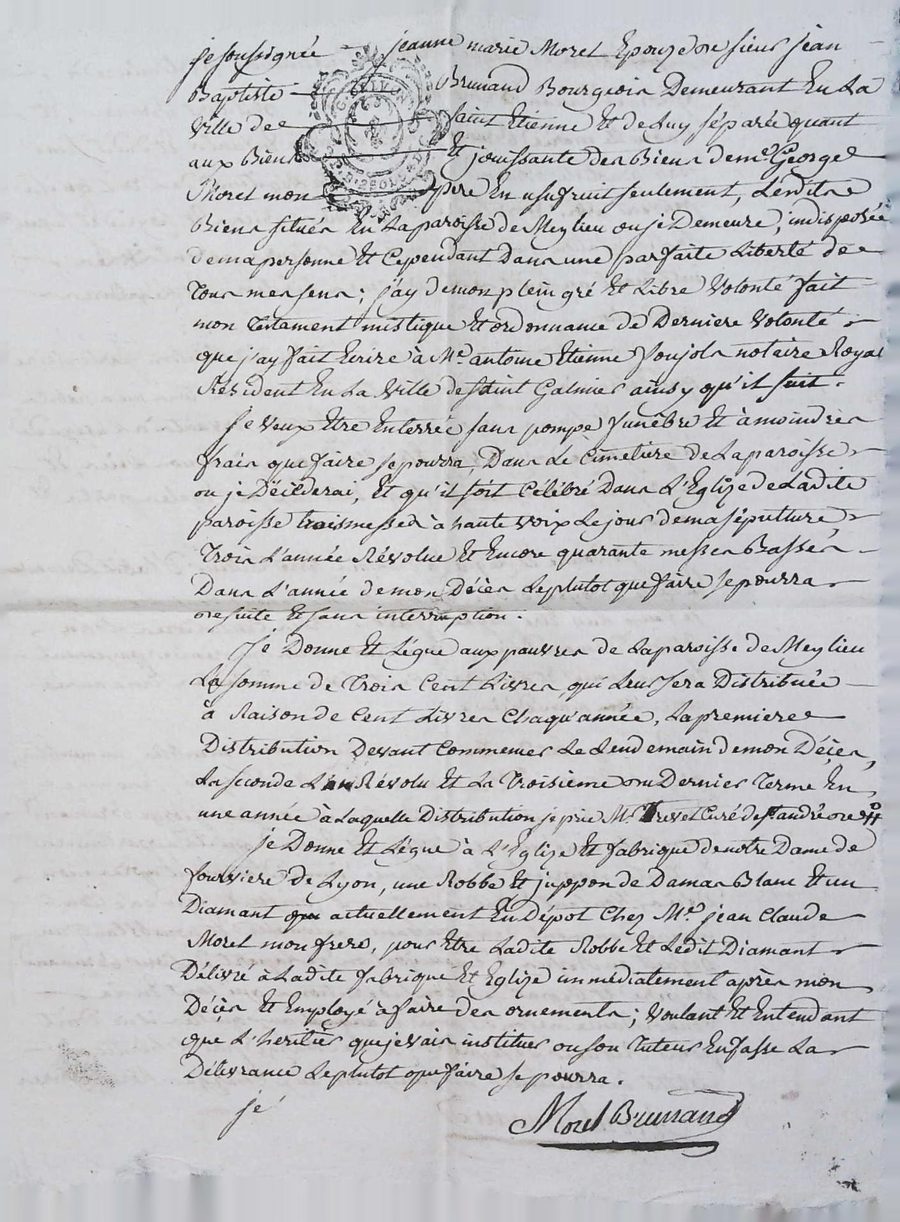 je soussignée jeanne marie Morel Epouze de sieur jean
Baptiste Brunand Bourgeois Demeurant En La
Ville de saint Etienne Et de Luy séparée quant
aux Biens Et jouissante des Biens de me. George
Morel mon pere En usufruit seulement, Lesdits
Biens situés En La paroisse de Meylieu ou je Demeure, indisposée
de ma personne Et Cependant Dans une parfaite Liberté de
Tous mes sens; j'ay de mon plein gré Et Libre Volonté fait
mon Testament mistique Et ordonnance de Derniere Volonté
que j'ay fait Ecrire à Me. antoine Etienne Poujols notaire Royal
Résident En La Ville de saint Galmier ainsy qu'il suit.
je veux Etre Enterrée sans pompe funébre Et à moindres
frais que faire se pourra, Dans Le Cimetiere de La paroisse
ou je Déc̀éderai, Et qu'il soit Célébré Dans L'Eglize de Ladite
paroisse trois messes à haute voix Le jour de ma sépulture,
Trois L'année Révolue Et Encore quarante messes Basses
Dans L'année de mon Décès Le plutot que faire se pourra
de suite Et sans interruption.
je Donne Et Lègue aux pauvres de La paroisse de Meylieu
La somme de Trois Cent Livres qui Leur sera Distribuée
à Raison de Cent Livres Chaqu'année, La premiere
Distribution Devant Commencer Le Lendemain de mon Décès,
La seconde L'an Révolu Et La Troisième ou Dernier Terme En
une année à Laquelle Distribution je prie Mr. Trevet Curé de st andré
je Donne Et Lègue à L'Eglize Et fabrique de notre Dame de
fourviere de Lyon, une Robbe Et juppon de Damas Blanc Et un
Diamant actuellement En Dépot Chez Mr. jean Claude
Morel mon frere, pour Etre Ladite Robbe Et Ledit Diamant
Délivré à Ladite fabrique Et Eglize immédiatement après mon
Décès Et Employé à faire des ornements; Voulant Et Entendant
que L'heritier que je vais instituer ou son Tuteur En fasse La
Délivrance Le plutot que faire se pourra.
je
Morel Brunand